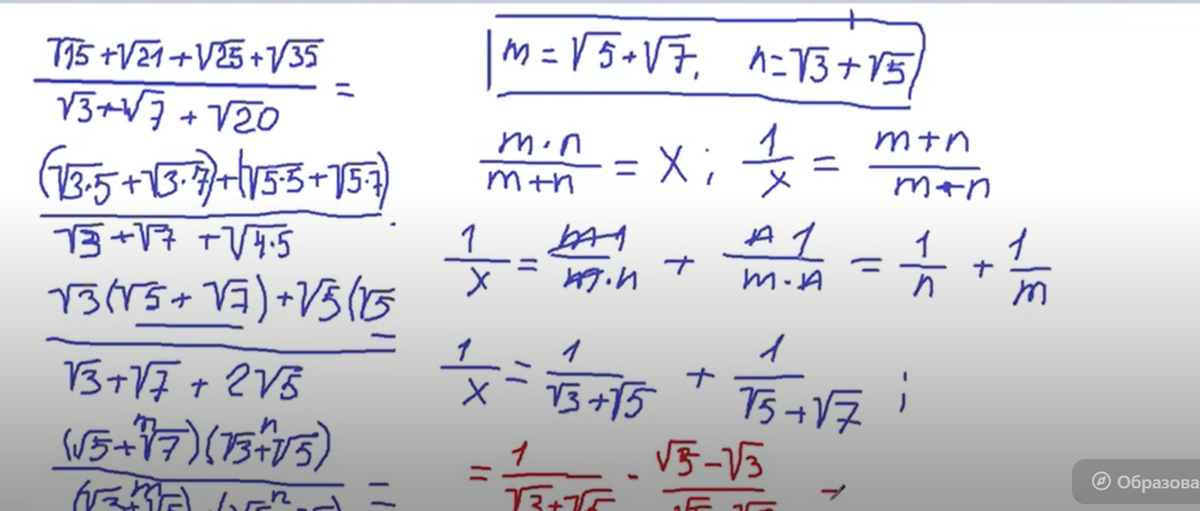 √15+√21+√25+√35
√3+√7+√20 =
(√3·5+√3·7)+(√5·5+√5·7)
√3+√7+√4·5
√3(√5+√7)+√5(√5
√3+√7+2√5
m n
(√5+√7)(√3+√5)
m n =
m=√5+√7, n=√3+√5
m·n/m+n = x; 1/x = m+n/m+n
1/x = m·1/m·n + n1/m·n = 1/n + 1/m
1/x = 1/√3+√5 + 1/√5+√7 ;
= 1/√3+√5 · √5-√3
Образова